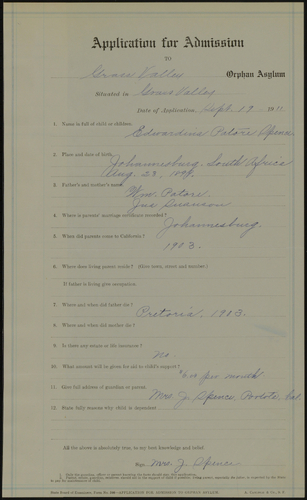 Application for Admission
TO
Grass Valley Orphan Asylum
Situated in Grass Valley
Date of Application, Sept. 19 1911
1. Name in full of child or children.
Edwardine Patore Spence
2. Place and date of birth.
Johannesburg, South Africa
Aug. 28, 1899.
3. Father's and mother's name.
Wm. Patore
Swanson
4. Where is parents' marriage certificate recorded?
Johannesburg.
5. When did parents come to California?
1903.
6. Where does living parent reside? (Give town, street and number)
If father is living give occupation
7. Where and when did father die?
Pretoria, 1903.
8. Where and when did mother die?
9. Is there any estate or life insurance?
No.
10. What amount will be given for aid in child's support?
per month
11. Give full address of guardian or parent.
Mrs. J. Spence, Cal.
12. State fully reasons why child is dependent
All the above is absolutely true, to my best knowledge and belief.
Sign. Mrs. J. Spence